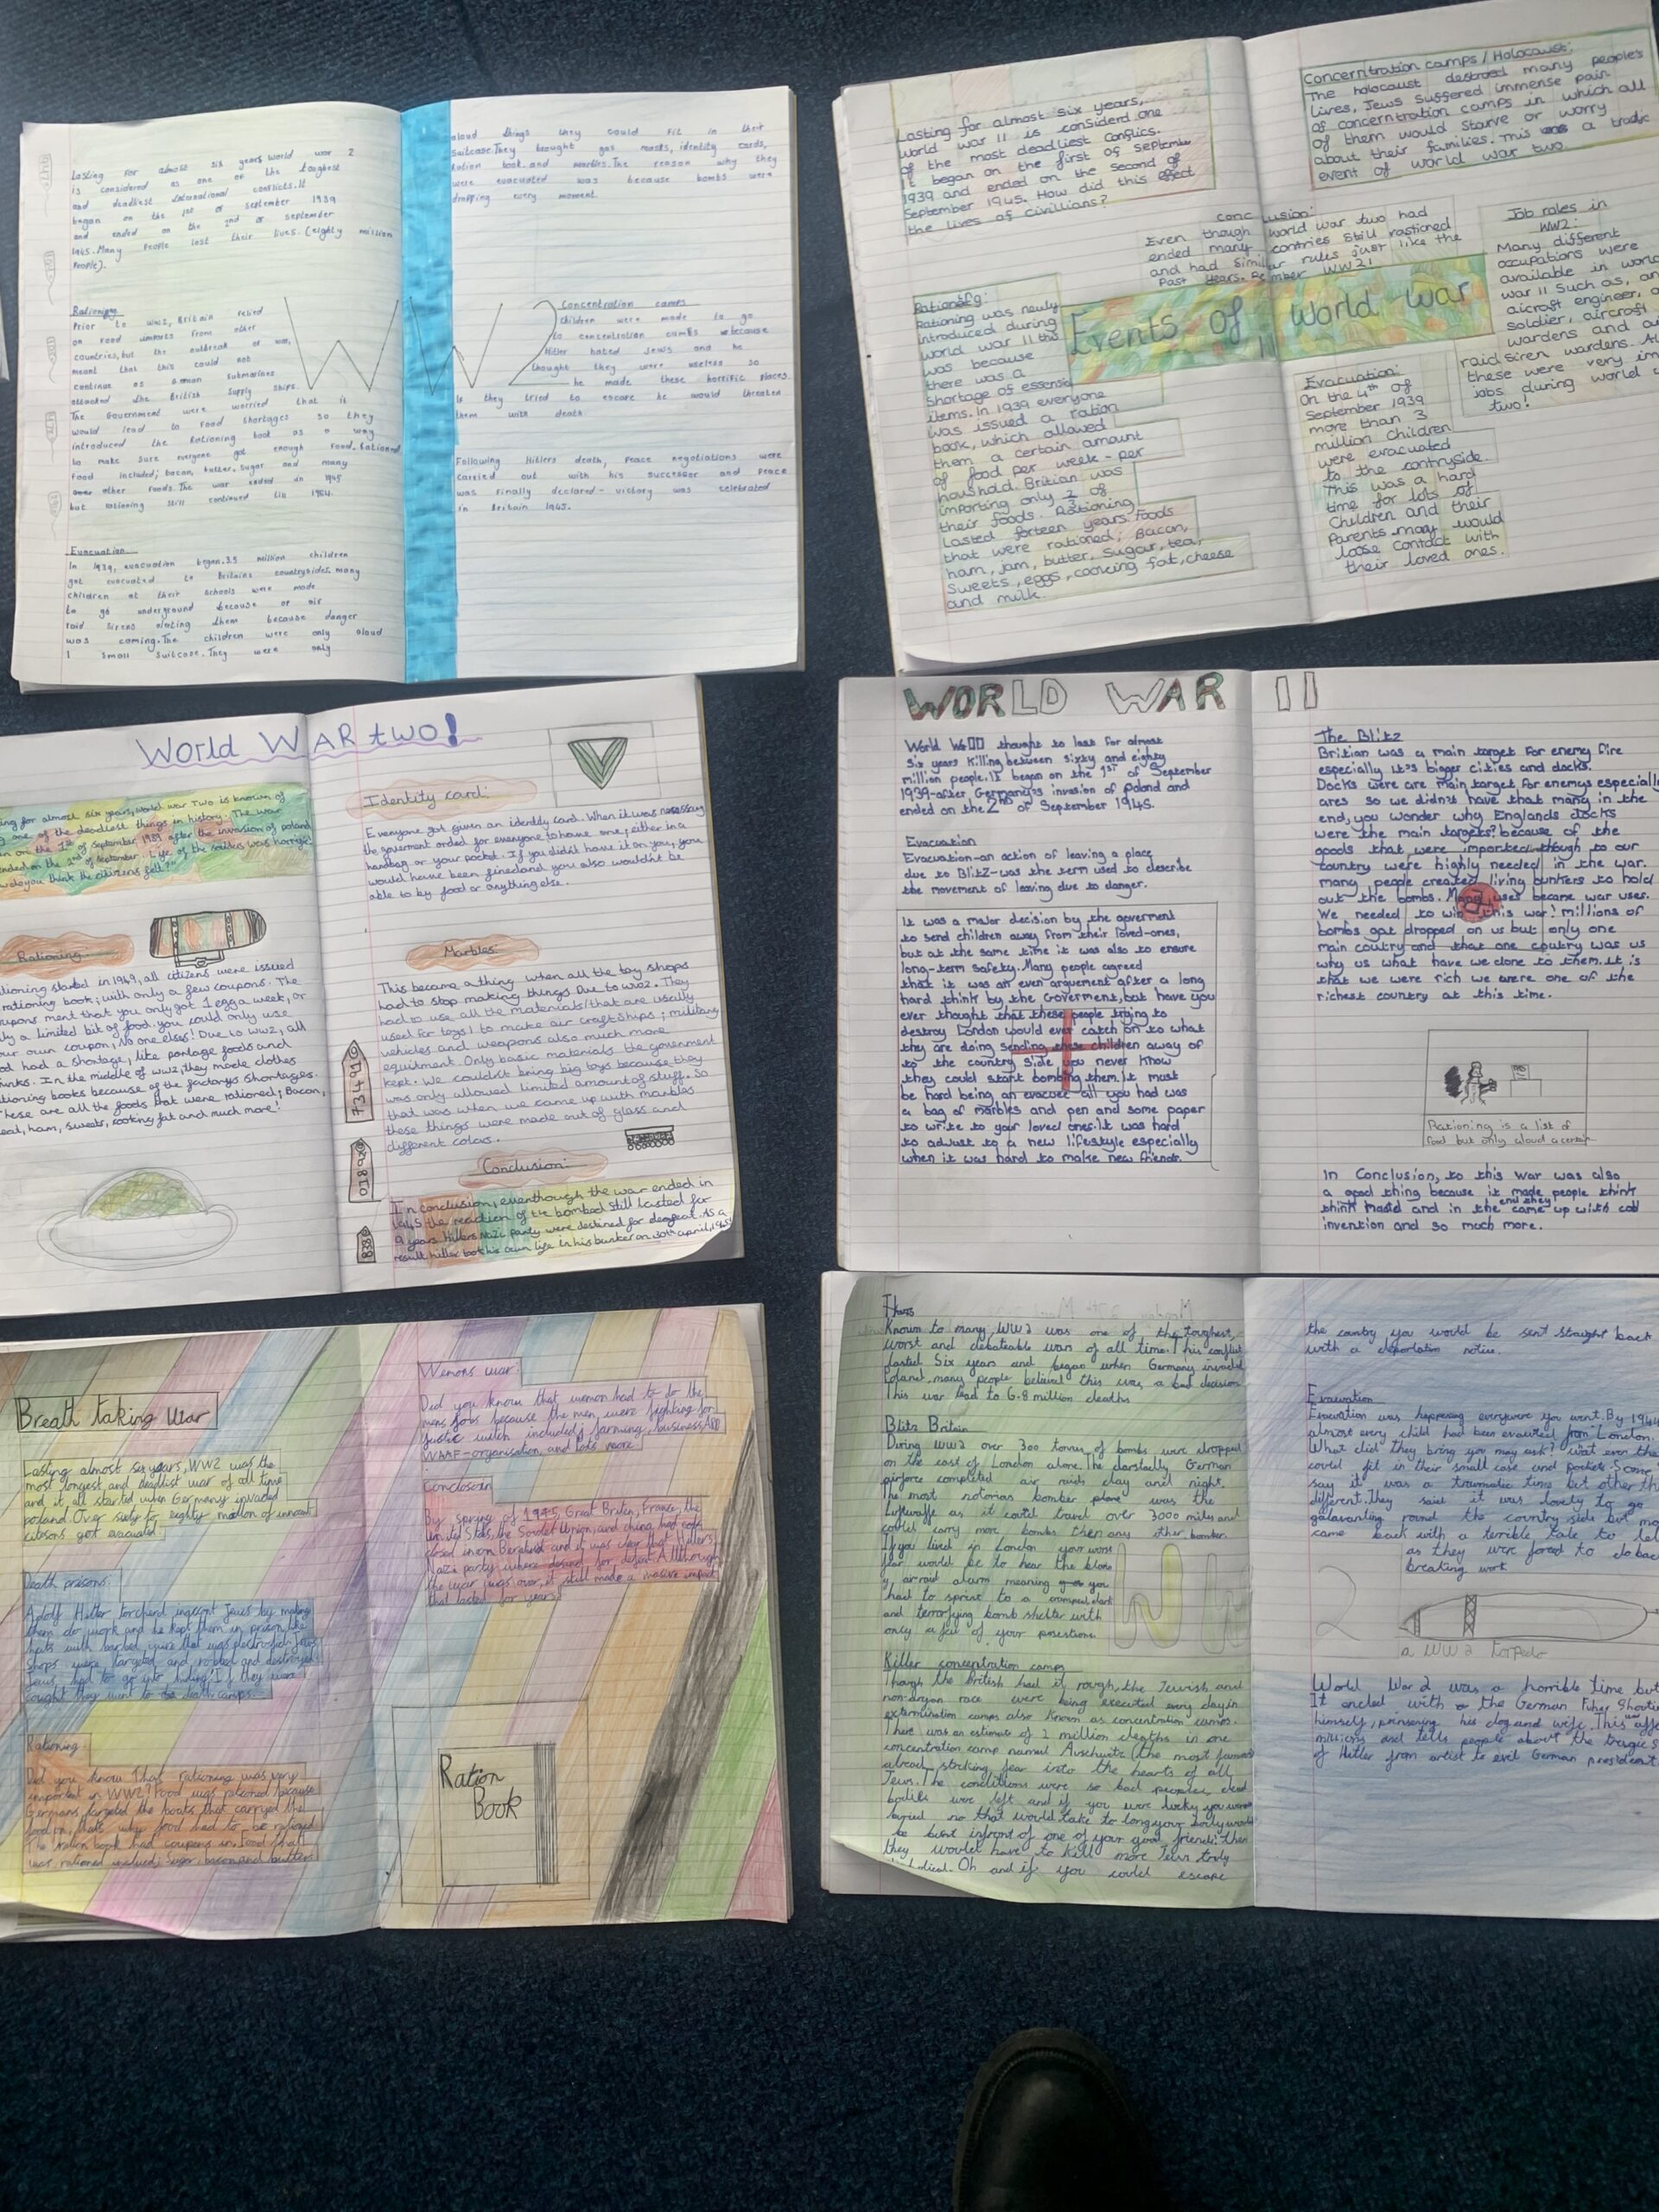 Lasting for almost six years world war 2
is considered as one of the toughest
and deadliest international conflicts.It
began on the 1st of september 1939
and ended on the 2nd of september
1945.Many People lost their lives.(eighty million
People).
Rationing
Prior to ww2, Britain relied
on food imports from other
countries,but the outbreak of war,
meant that this could not
continue as German submarines
attacked the British supply ships.
The Government were worried that is
would lead to food shortages so they
introduced the Rationing book as a way
to make sure everyone got enough food.Rationed
food included; bacon, butter, sugar and many
other foods.The war ended in 1945
but rationing still continued till 1954.
Evacuation
In 1939, evacuation began.3.5 million children
got evacuated to Britains countrysides.many
children at their schools were made
to go underground because of air
raid sirens them because danger
was coming.The children were only aloud
1 small suitcase.They were only
aloud things they could fit in their
suitcase.They brought gas masks, identity cards,
ration book and marbles.The reason why they
were evacuated was because bombs were
dropping every moment.
WW2
Concentration camps
Children were made to go
to concentration camps because
Hitler hated Jews and he
thought they were useless so
he made these horrific places.
If they tried to escape he would threaten
them with death
Following Hitlers death, peace negotiations were
carried out with his successor and peace
was finally declared - victory was celebrated
in Britain 1945.
Lasting for almost six years,
world war II is considerd one
of the most deadliest conflics.
It began on the first of september
1939 and ended on the second of
September 1945. How did this effect
the lives of civillians?
Concerntration camps / Holocaust:
The holocaust destroed many people's
lives, Jews suffered immense pain
of concerntration camps in which all
of them would starve or worry
about their families. This was a tradic
event of world war two.
conclusion:
Even though world war two had
ended many contries still rastioned
and had similar rules just like the
past years. Remember WW2!
Events of World War
II
Rationing:
Rationing was newly
introduced during
world war II this
was because
there was a
shortage of essensial
items. In 1939 everyone
was issued a ration
book, which allowed
them a certain amount
of food per week - per
houshold. Britian was
importing only 2/3 of
their foods. Rationing
Lasted forteen years. Foods
that were rationed; Bacon,
ham, jam, butter, sugar, tea,
sweets, eggs, cooking fat, cheese
and milk.
Evacuation:
On the 4th of
September 1939
more than 3
million Children
were evacuated
to the contryside.
This was a hard
time for lots of
Children and their
Parents many would
loose contact with
their loved ones.
Job roles in
WW2:
Many different
occupations were
available in world
war II such as, an
aircraft engineer, a
soldier, aircraft
wardens and ai
raid siren wardens. Al
these were very im
jobs during world
two!
World WAR two!
ing for almost six years, World War Two is known of
g one of the deadliest things in history. The war
an on the 1st of September 1939 after the invasion of poland
ended on the 2nd of September. Life of the soldiers was horrific
w do you think the citizens felt?
Rationing
tioning started in 1949, all citizens were issued
rationing book; with only a few coupons. The
upons ment that you only got 1 egg a week, or
ly a limited bit of food. you could only use
our own coupon, No one elses! Due to WW2, all
od had a shortage, like portage foods and
inks. In the middle of WW2, they made clothes
tioning books because of the factorys shortages.
These are all the foods that were rationed; Bacon,
eal, ham, sweats, cooking fat and much more!
Identity card:
Everyone got given an identity card. When it was nessasay
the goverment orded for everyone to have one; either in a
handbag or your pocket. If you didn't have it on you, you
would have been fined and you also wouldn't be
able to by food or anything else.
Marbles:
This became a thing when all the toy shops
had to stop making things Due to WW2. They
had to use all the materials (that are usually
used for toys) to make air craft ships; military
vehicles and weapons also much more
equitment. Only basic materials the goverment
kept. We couldn't bring big toys because they
was only allowed limited amount of stuff. So
that was when we came up with marbles
these things were made out of glass and
different colors.
734910
018920
Conclusion:
In conclusion, eventhough the war ended in
1945 the reaction of the bombed still lasted for
9 years. Hitlers Nazi party were destined for defeat. As a
result hitler took his own life in his bunker on 30th april, 1945
WORLD WAR II
World War II thought to last for almost
six years killing between sixty and eighty
million people.It began on the 1st of September
1939-after Germany's invasion of poland and
ended on the 2nd of September 1945.
Evacuation
Evacuation-an action of leaving a place
due to Blitz-was the term used to describe
the movement of leaving due to danger.
It was a major decision by the goverment
to send children away from their loved-ones,
but at the same time it was also to ensure
long-term safety.Many people agreed
that it was an even arguement after a long
hard think by the Goverment,but have you
ever thought that these people trying to
destroy London would ever catch on to what
they are doing sending these children away of
to the country side you never know
they could start bombing them.It must
be hard being an evacuee all you had was
a bag of marbles and pen and some paper
to write to your loved ones.It was hard
to adjust to a new lifestyle especially
when it was hard to make new friends.
The Blitz
Britian was a main target for enemy fire
especially it's bigger cities and docks.
Docks were are main target for enemys especially
ares so we didn't have that many in the
end, you wonder why Englands docks
were the main targets? because of the
goods that were imported though to our
country were highly needed in the war.
many people created living bunkers to hold
out the bombs. Many uses became war uses.
We needed to win this war! millions of
bombs got dropped on us but only one
main coutry and that one coutry was us
why us what have we done to them.It is
that we were rich we were one of the
richest country at this time.
Rationing is a list of
food but only aloud a certain
In Conclusion, to this war was also
a good thing because it made people think
think hard and in the end they came up with cool
invention and so much more.
Breath taking War
Lasting almost six years, WW2 was the
most longest and deadlist war of all time
and it all started when Germany invaded
poland. Over sixty to eighty million of innocent
citisons got evacuated.
Death prisons:
Adolf Hitler torcherd inocent Jews by making
them do work and he kept them in prison like
huts with barbed yure that was electrosied. Jews
shops were targeted and robbed and destroyed.
Jews had to go into hiding. If they were
caught they went to the death camps.
Rationing:
Did you know that rationing was very
important in WW2? Food was rationed because
Germans targeted the boats that carried the
food in, thats why food had to be rationed
The ration book had coupons in. Food that
was rationed inclued; Sugar, bacon and butter.
Wemons war:
Did you know that womon had to do the
mens jobs because the men were fighting for
justic wich included; farming, business, ARP
WAAF-organisation and lots more.
Conclosion
By spring of 1945, Great Briten, France, the
United States, the Soviet Union, and china, had
closed in on Berlin and it was clear that Hitler's
Nazi party where desined for defeat. Allthough
the war was over, it still made a massive impact
that lasted for years.
Ration
Book
Known to many, WW2 was one of the toughest,
worst and debateable wars of all time. This conflict
lasted Six years and began when Germany invaded
Poland, many people believed this was a bad decision
This war lead to 6.8 million deaths
Blitz Britain
During WW2 over 300 tonnes of bombs were dropped
on the east of London alone. The dastardly German
airforce completed air raids day and night.
The most notorius bomber plane was the
Luftwaffe as it could travel over 3000 miles and
could carry more bombs then any other bomber.
If you lived in London your worst
fear would be to hear the
air raid alarm meaning you
had to sprint to a cramped, dark
and terrorfying bomb shelter with
only a few of your posestions.
WW
2
Killer concentration camps
Though the British had it rough, the Jewish and
non-aryan race were being executed every day in
extermination camps also known as concentration camps.
There was an estimate of 2 million deaths in one
concentration camp named Auschwitz (the most famous)
already striking fear into the hearts of all
Jews. The conditions were so bad peoples dead
bodies were left and if you were lucky you were
buried no that would take to long your body would
be burnt infront of one of your good friends then
they would have to kill more Jews truly
Oh and if you could escape
the country you would be sent straight back
with a deportation notice.
Evacuation
Evacuation was happening everywere you went. By 1944
almost every child had been evacuated from London.
What did they bring you may ask? wat ever the
could fit in their small case and pockets. Some
say it was a traumatic time but other th
different. They said it was lovely to go
galavanting round the country side but mo
came back with a terrible tale to tel
as they were forced to do bac
breaking work
a WW2 torpedo
World War 2 was a horrible time but
It ended with the German Fuher Shooti
himself, poisening his dog and wife. This affe
millions and tells people about the tragic s
of Hitler from artist to evil German president